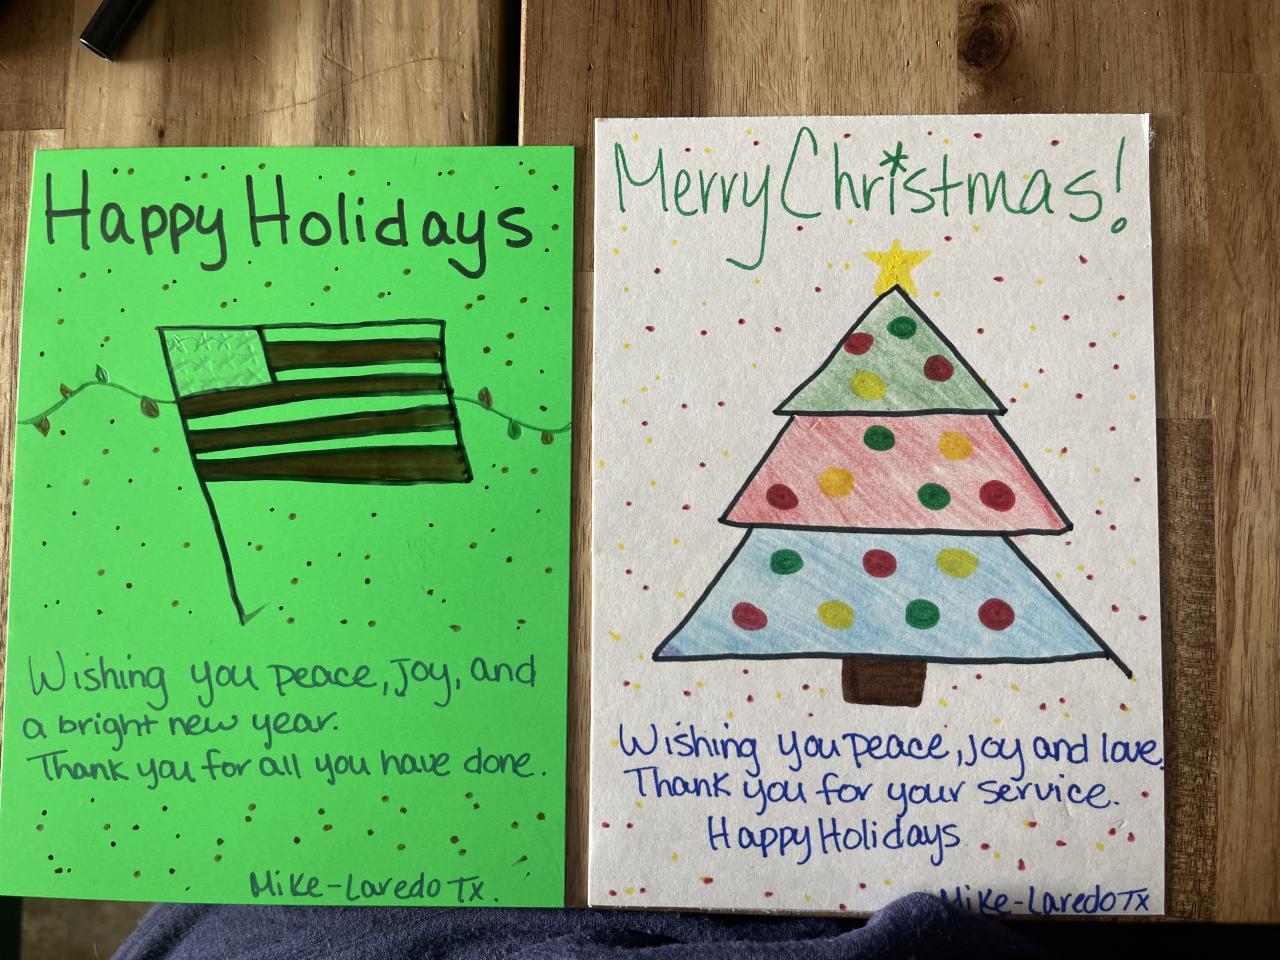 Happy Holidays
Wishing you peace, joy, and
a bright new year.
Thank you for all you have done.
Mike-Laredo Tx.
Merry Christmas!
Wishing you peace, joy and love.
Thank you for your service.
Happy Holidays
Mike-Laredo Tx